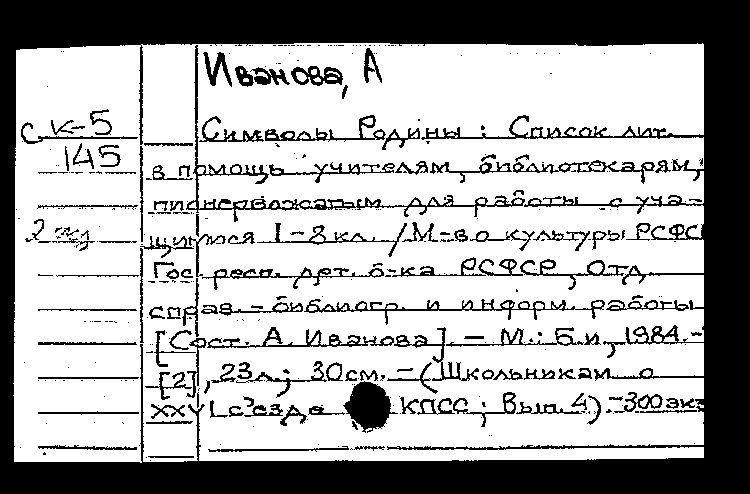 Иванова, А
С К-5
145
Символы Родины : Список лит.
в помощь учителям, библиотекарям,
пионервожатым для работы с уча-
2 экз
щимися I-8 кл. / М-во культуры РСФСР
Гос. респ. дет. б-ка РСФСР, Отд.
справ.-библиогр. и информ. работы
[Сост. А. Иванова]. - М.: Б.и, 1984.-
[2], 23л.; 30см. - (Школьникам о
XXVI с'езде КПСС; Вып. 4).-300экз